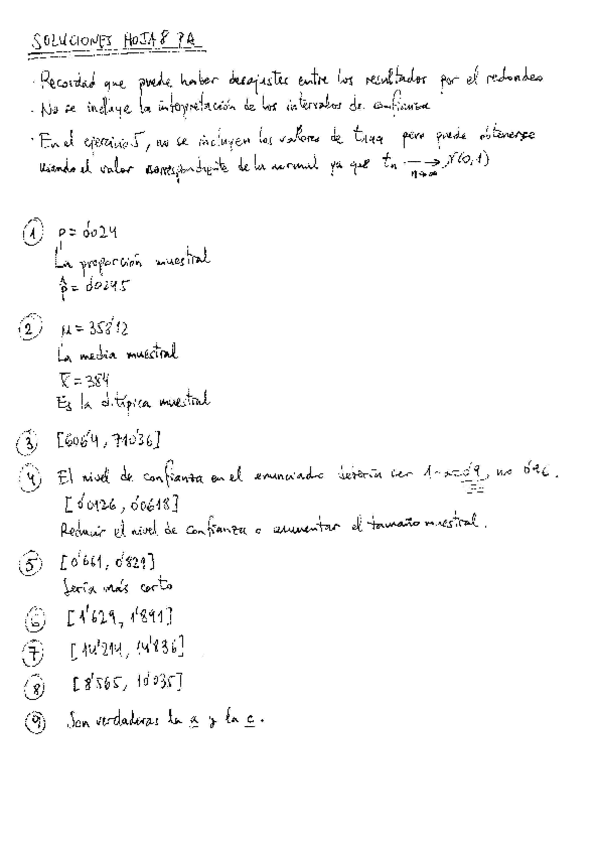 SOLUCIONES HOJA 8 PA
· Recordad que puede haber desajustes entre los resultados por el redondeo
· No se incluye la interpretación de los intervalos de confianza
· En el ejercicio 5, no se incluyen los valores de t pero puede obtenerse
usando el valor correspondiente de la normal ya que tn → N(0,1)
n→∞
1 p = 0'024
La proporción muestral
p̂ = 0'0245
2 μ = 358'12
La media muestral
x̄ = 384
Es la d.típica muestral
3
4 El nivel de confianza en el enunciado debería ser 1-α=0'9, no 0'96.
[0'0126, 0'0618]
Reducir el nivel de confianza o aumentar el tamaño muestral.
5 [0'661, 0'829]
Sería más corto
6 [1'629, 1'891]
7 [14'214, 14'836]
8 [8'565, 10'035]
9 Son verdaderas la a y la c.